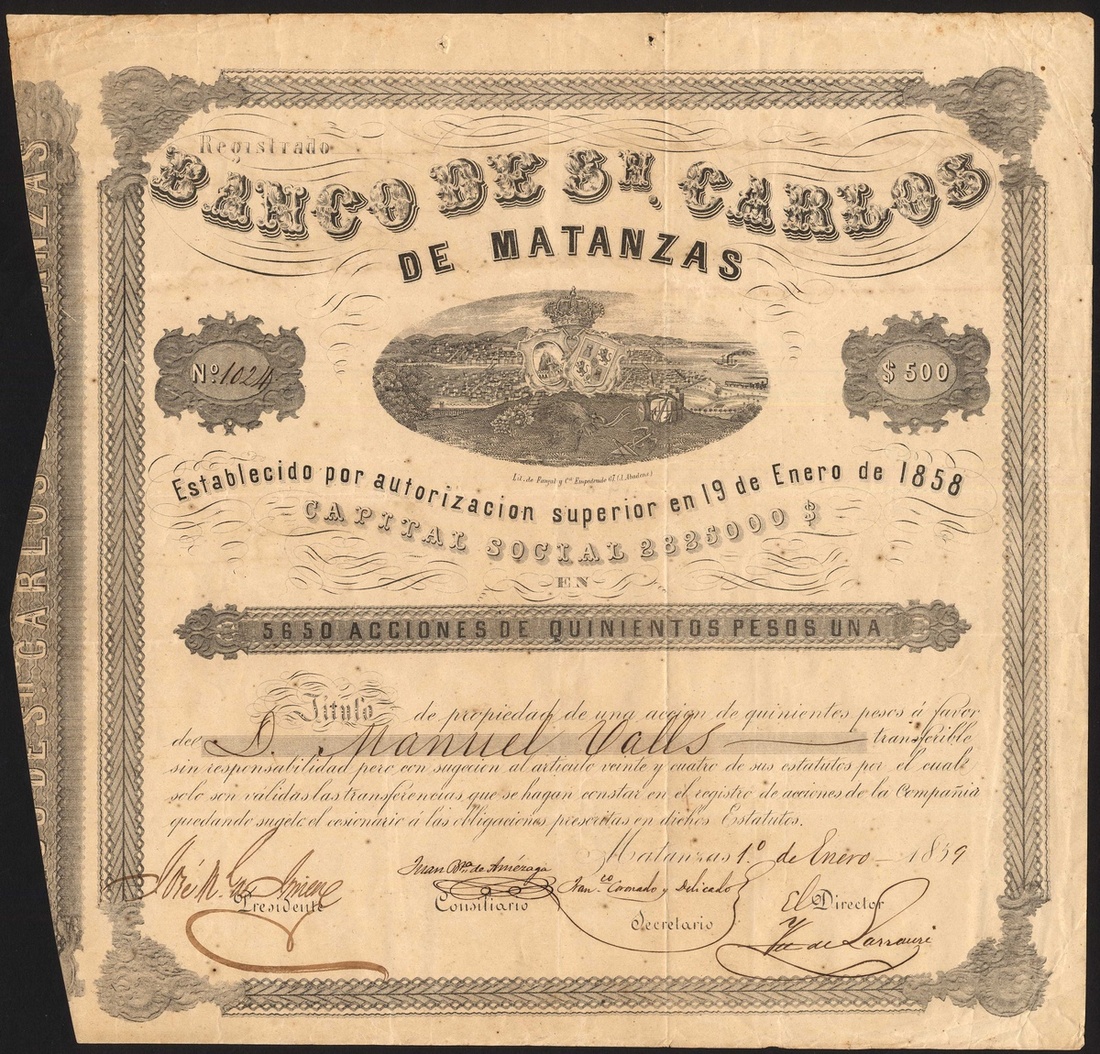 Registrado
BANCO DE Sn. CARLOS
DE MATANZAS
No. 1024
$ 500
Establecido por autorizacion superior en 19 de Enero de 1858
CAPITAL SOCIAL 2825000 $
EN
5650 ACCIONES DE QUINIENTOS PESOS UNA
Titulo de propiedad de una accion de quinientos pesos á favor
de D. Manuel Valls transferible
sin responsabilidad pero con sugecion al articulo veinte y cuatro de sus estatutos por el cual
solo son válidas las transferencias que se hagan constar en el registro de acciones de la Compañia
quedando sugeto el cesionario á las obligaciones prescritas en dichos Estatutos.
Matanzas 1.º de Enero 1859
José M.
Presidente
Juan Bta. de Amézaga
Consiliario
Franco. Coronado y Delicado
Secretario
El Director
de Larrauri
DE Sn CARLOS
MATANZAS